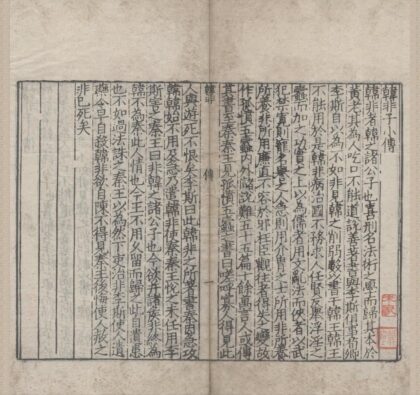 韓非子小傳
韓非者韓之諸公子也喜刑名法術之學而歸其本於
黃老其為人吃口不能道說善著書與李斯俱事荀卿
李斯自以為不如非見韓之削弱數以書干韓王韓王
不能用於是韓非病治國不務求人任賢反舉浮淫之
蠹而加之功實之上以為儒者用文亂法而俠者以武
犯禁寬則寵名譽之人急則用介胄之士所用非所養
所養非所用廉直不容於邪枉之臣觀往者得失之變故
作孤憤五蠹內外儲說難五十五篇十餘萬言人或傳
其書至秦秦王見孤憤五蠹之書曰嗟呼寡人得見此
韓非 傳 一
人與遊死不恨矣李斯曰此韓非之所著書秦因急攻
韓韓始不用及急乃遣韓非使秦秦王悅之未任用李
斯害之秦王曰非韓之諸公子也今欲并諸侯非終為
韓不為秦此人情也今王不用久留而歸之此自遺患
也不如過法誅之秦王以為然下吏治非李斯使人遺
藥令早自殺韓非欲自陳不得見秦王後悔使人赦之
非已死矣